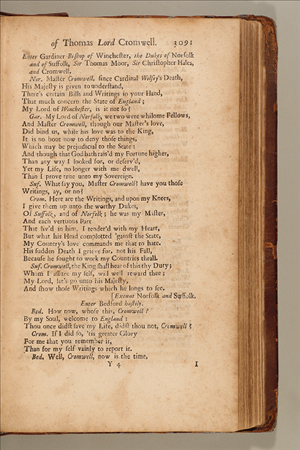 of Thomas Lord Cromwell. 3091
Enter Gardiner Bishop of Winchester, the Dukes of Norfolk
and of Suffolk, Sir Thomas Moor, Sir Christopher Hales,
and Cromwell.
Nor. Master Cromwell, since Cardinal Wolsey's Death,
His Majesty is given to understand,
There's certain Bills and Writings in your Hand,
That much concern the State of England;
My Lord of Winchester, is it not so?
Gar. My Lord of Norfolk, we two were whilome Fellows,
And Master Cromwell, though our Master's love,
Did bind us, while his love was to the King,
It is no boot now to deny those things,
Which may be prejudicial to the State:
And though that God hath rais'd my Fortune higher,
Than any way I look'd for, or deserv'd,
Yet my Life, no longer with me dwell,
Than I prove true unto my Sovereign.
Suf. What say you, Master Cromwell? have you those
Writings, ay, or no?
Crom. Here are the Writings, and upon my Knees,
I give them up unto the worthy Dukes,
Of Suffolk, and of Norfolk; he was my Master,
And each vertuous Part
That liv'd in him, I tender'd with my Heart,
But what his Head complotted 'gainst the State,
My Country's love commands me that to hate.
His sudden Death I grieve for, not his Fall,
Because he sought to work my Countries thrall.
Suf. Cromwell, the King shall hear of thy Duty;
Whom I assure my self, will well reward thee:
My Lord, let's go unto his Majesty,
And show those Writings which he longs to see.
[Exeunt Norfolk and Suffolk.
Enter Bedford hastily.
Bed. How now, whose this, Cromwell?
By my Soul, welcome to England:
Thou once didst save my Life, didst thou not, Cromwell?
Crom. If I did so, 'tis greater Glory
For me that you remember it,
Than for my self vainly to report it.
Bed. Well, Cromwell, now is the time,
Y 4 I